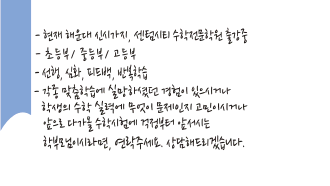 - 현재 해운대 신시가지, 센텀시티 수학전문학원 출강중
- 초등부/ 중등부/ 고등부
- 선행, 심화, 피드백, 반복학습
- 각종 맞춤학습에 실망하셨던 경험이 있으시거나
학생의 수학 실력에 무엇이 문제인지 고민이시거나
앞으로 다가올 수학시험에 걱정부터 앞서시는
학부모님이시라면, 연락주세요. 상담해드리겠습니다.